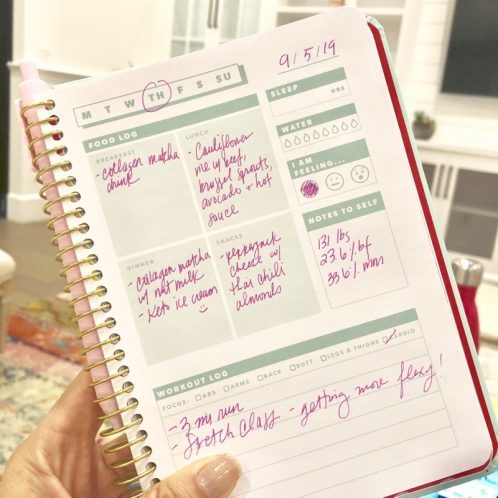 9/5/19
M T W TH F S SU
SLEEP
HRS
FOOD LOG
BREAKFAST
- collagen matcha
drink
LUNCH
- Cauliflower
rice w/ beef,
brussel sprouts,
avocado + hot
sauce
WATER
I AM
FEELING...
DINNER
- collagen matcha
w/ nut milk
- Keto ice cream
SNACKS
- pepperjack
cheese w/
thai chili
almonds
NOTES TO SELF
131 lbs
23.6% bf
33.6% mm
WORKOUT LOG
FOCUS: ABS ARMS BACK BUTT LEGS & THIGHS CARDIO
- 3 mi run
- Stretch Class - getting more flexy!